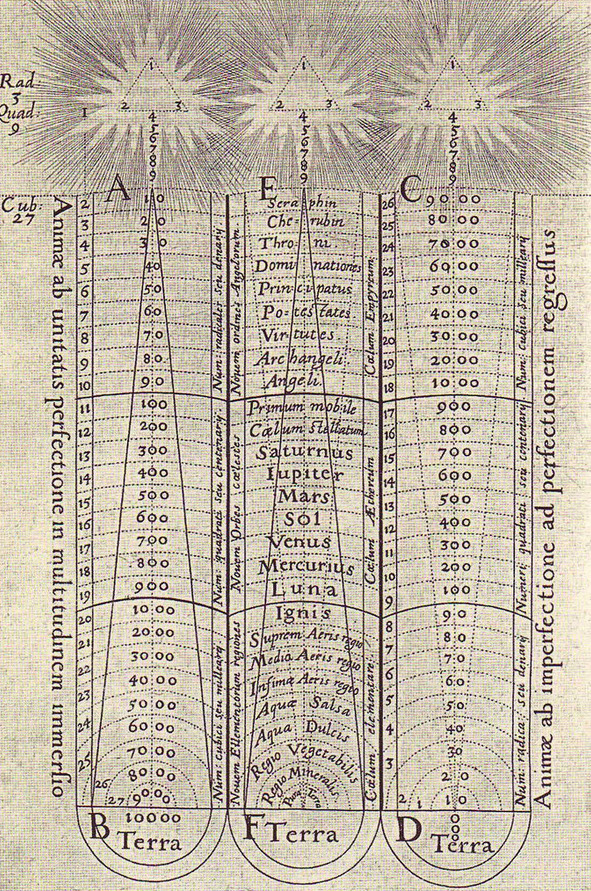 Rad:
3
Quad:
9
1
Cub:
27
1
2 3
4
5
6
7
8
9
1
2 3
4
5
6
7
8
9
1
2 3
4
5
6
7
8
9
Animæ ab unitatis perfectione in multitudinem immersio
A
2 10
3 20
4 30
5 40
6 50
7 60
8 70
9 80
10 90
11 100
12 200
13 300
14 400
15 500
16 600
17 700
18 800
19 900
20 1000
21 2000
22 3000
23 4000
24 5000
25 6000
7000
26 8000
27 9000
10000
B
Terra
Num: radicales seu denarij
Num: quadrati seu centenarij
Num: cubici seu millearij
Novem ordines Angelorum
Novem Orbes cœlestes
Novem Elementorum regiones
E
Seraphin
Cherubin
Throni
Dominationes
Principatus
Potestates
Virtutes
Archangeli
Angeli
Primum mobile
Cœlum stellatum
Saturnus
Iupiter
Mars
Sol
Venus
Mercurius
Luna
Ignis
Suprem Aeris regio
Media Aeris regio
Infima Aeris regio
Aqua Salsa
Aqua Dulcis
Regio Vegetabilis
Regio Mineralis
Terra
F
Terra
Cœlum Empyreum
Cœlum Æthereum
Cœlum elementare
C
26 9000
25 8000
24 7000
23 6000
22 5000
21 4000
20 3000
19 2000
18 1000
17 900
16 800
15 700
14 600
13 500
12 400
11 300
10 200
9 100
8 90
7 80
6 70
5 60
50
4 40
3 30
20
2 1 10
D
Terra
Num: cubici seu millearij
Numeri quadrati seu centenarij
Num: radica: seu denarij
Animæ ab imperfectione ad perfectionem regressus